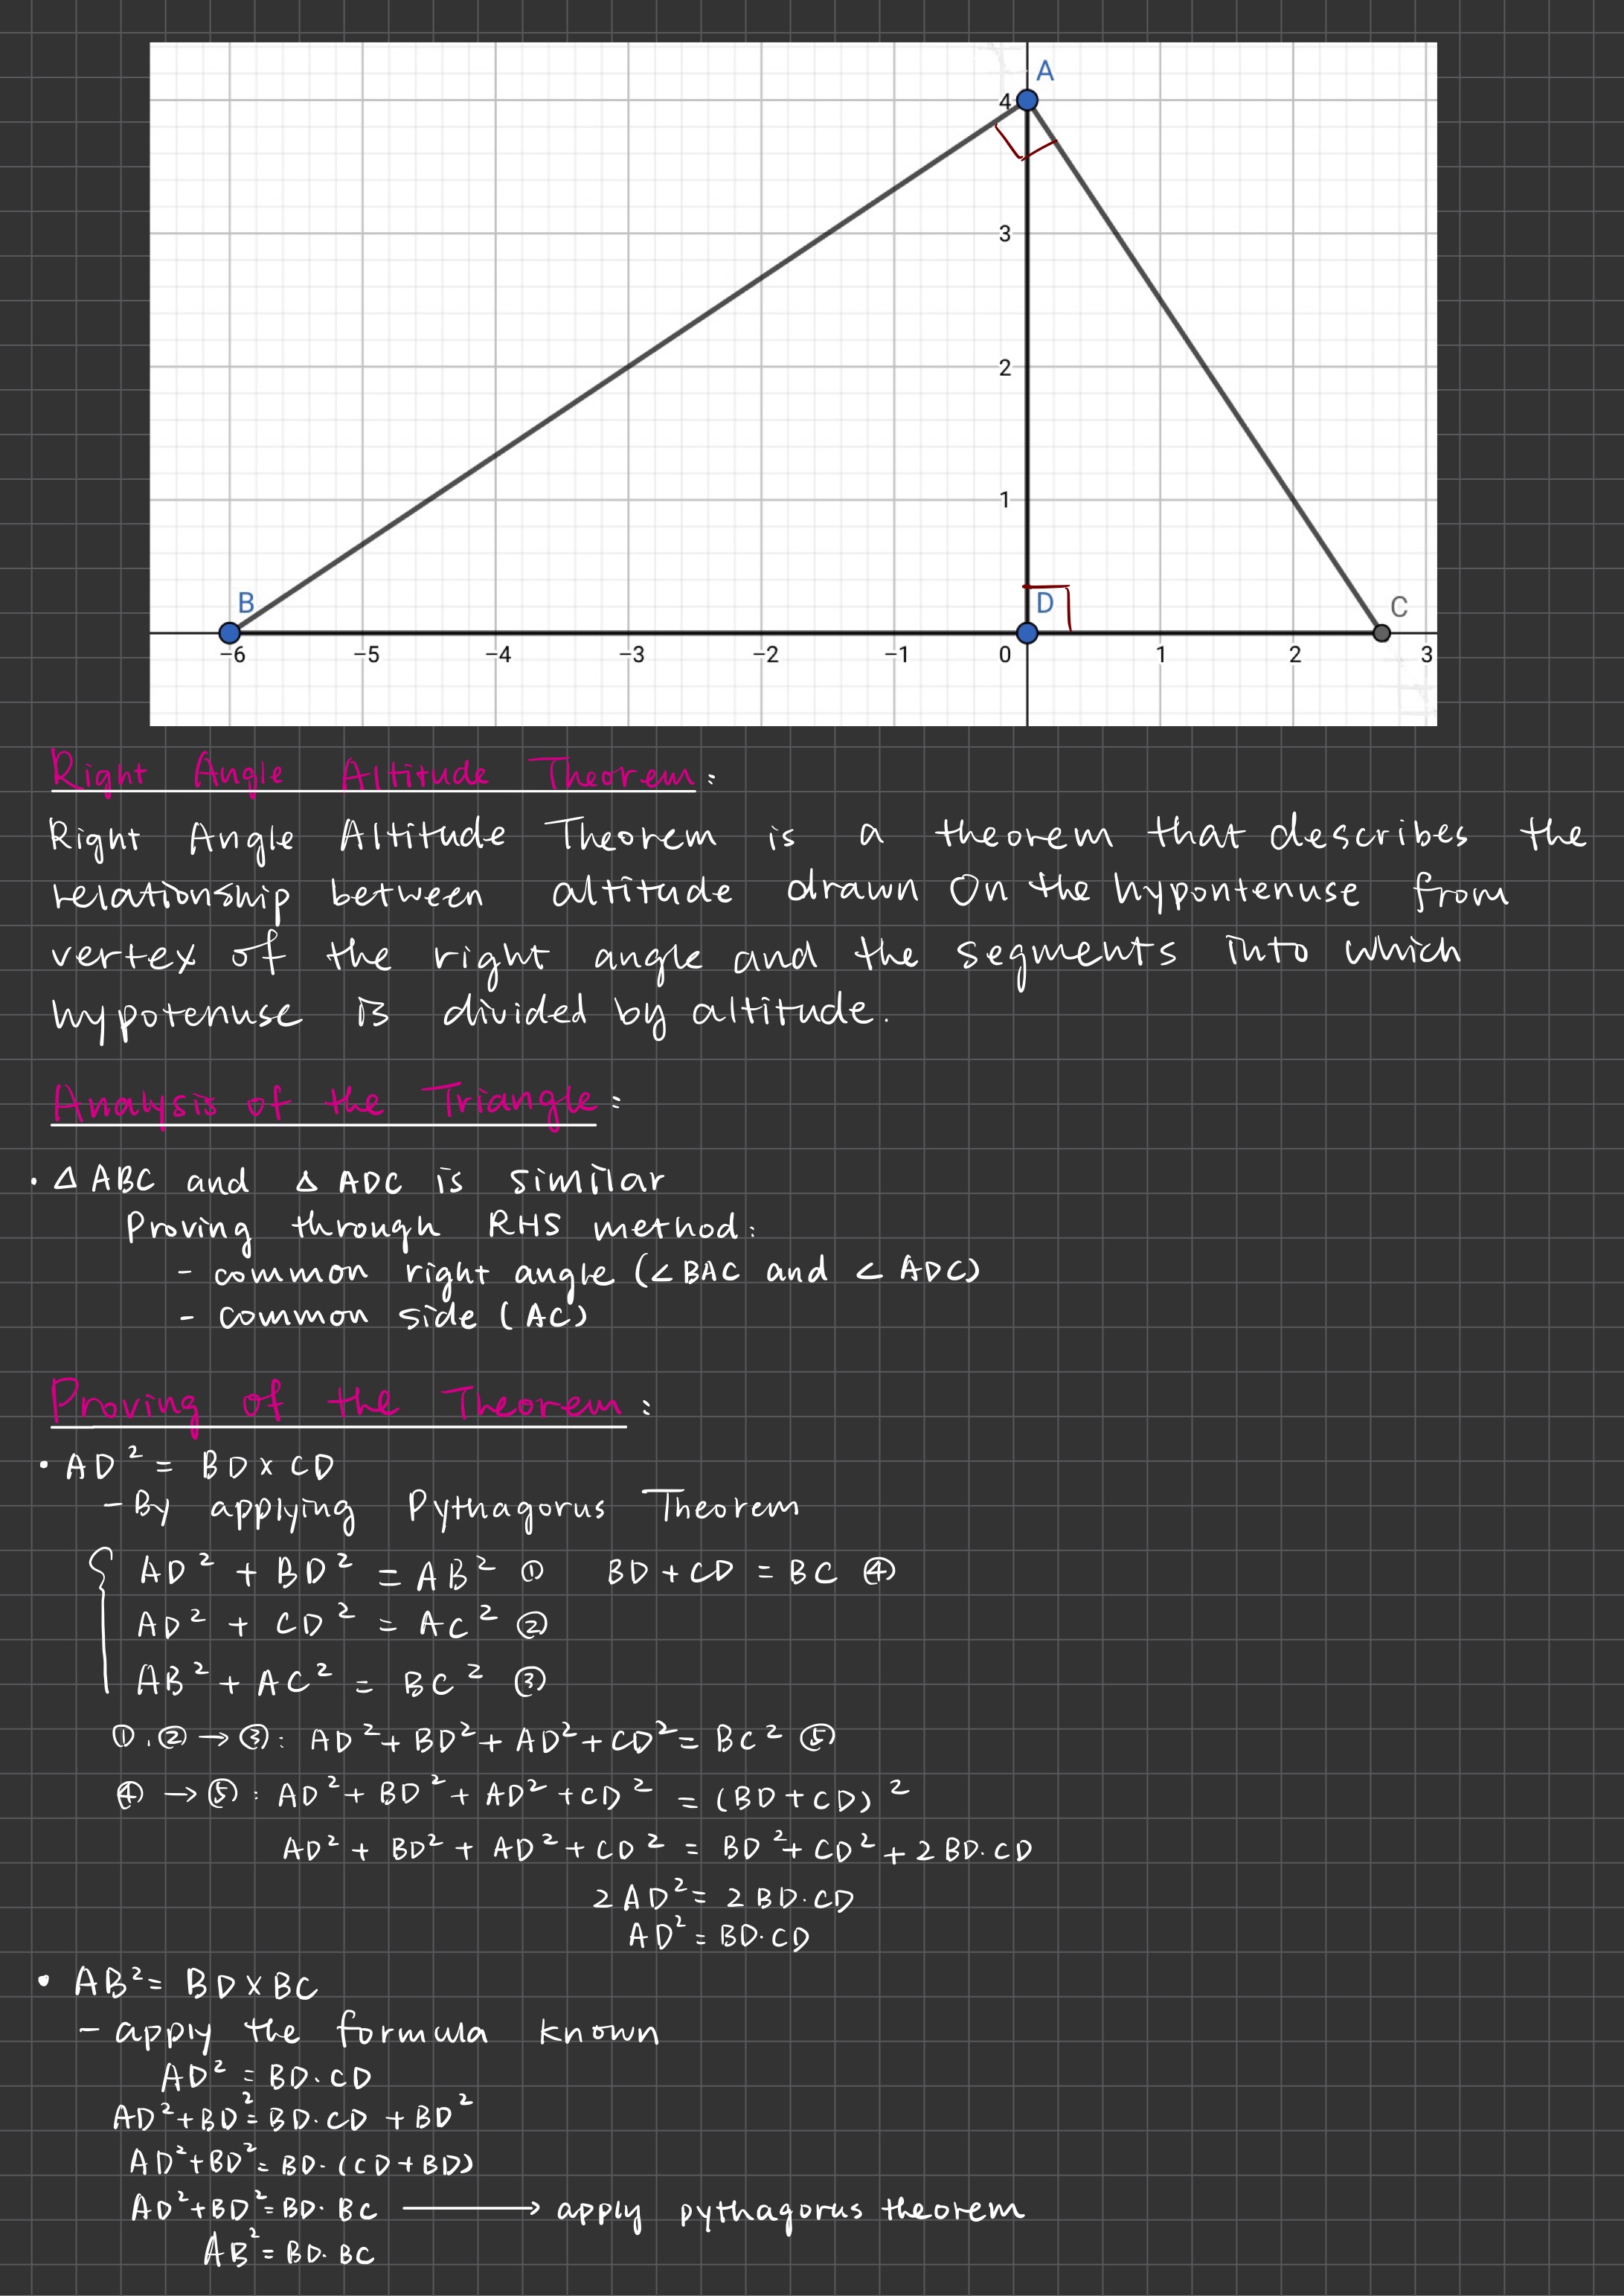 A
4
3
2
1
B
D
C
−6 −5 −4 −3 −2 −1 0 1 2 3
Right Angle Altitude Theorem:
Right Angle Altitude Theorem is a theorem that describes the
relationship between altitude drawn on the hypontenuse from
vertex of the right angle and the segments into which
hypotenuse is divided by altitude.
Analysis of the Triangle:
· △ ABC and △ ADC is similar
Proving through RHS method:
- common right angle (∠BAC and ∠ADC)
- common side (AC)
Proving of the Theorem:
• AD² = BD × CD
- By applying Pythagorus Theorem
AD² + BD² = AB² ① BD + CD = BC ④
AD² + CD² = AC² ②
AB² + AC² = BC² ③
①.② → ③: AD² + BD² + AD² + CD² = BC² ⑤
④ → ⑤: AD² + BD² + AD² + CD² = (BD + CD)²
AD² + BD² + AD² + CD² = BD² + CD² + 2BD·CD
2AD² = 2BD·CD
AD² = BD·CD
• AB² = BD × BC
- apply the formula known
AD² = BD·CD
AD² + BD² = BD·CD + BD²
AD² + BD² = BD·(CD + BD)
AD² + BD² = BD·BC → apply pythagorus theorem
AB² = BD·BC